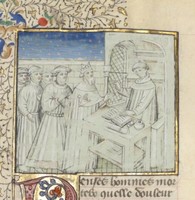 enses hommes mor
telz quelle douleur